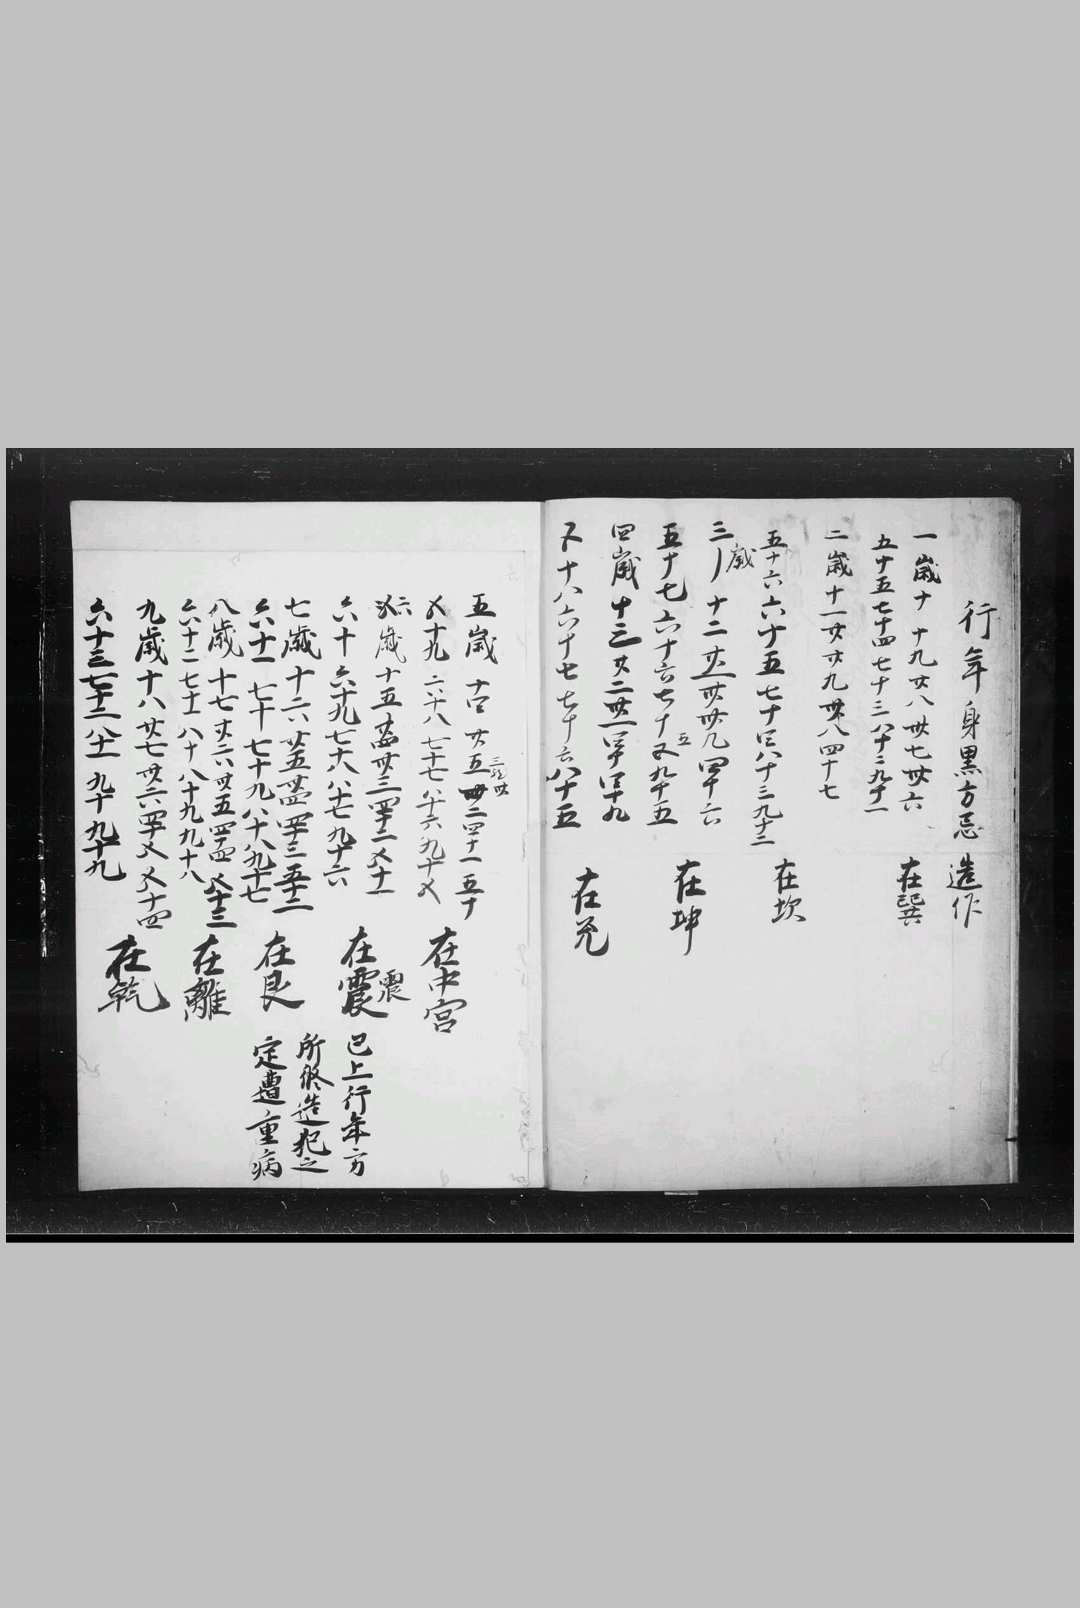 行年身黒方忌 造作
一歳 十 十九 廿八 卅七 卌六
五十五 七十四 七十三 八十二 九十一 在巽
二歳 十一 廿 廿九 卅八 四十七
五十六 六十五 七十四 八十三 九十二 在坎
三歳 十二 廿一 卅 卅九 四十六
五十七 六十六 七十五 九十五 在坤
四歳 十三 廿二 卅一 四十 四十九
五十八 六十七 七十六 八十五 在兌
五歳 十四 廿五 卅二 四十一 五十
五十九 六十八 七十七 八十六 九十五 在中宮
六歳 十五 廿四 卅三 四十二 五十一
六十 六十九 七十八 八十七 九十六 在震 震
七歳 十六 廿五 卅四 四十三 五十二
六十一 七十 七十九 八十八 九十七 在艮
八歳 十七 廿六 卅五 四十四 五十三
六十二 七十一 八十 八十九 九十八 在離
九歳 十八 廿七 卅六 四十五 五十四
六十三 七十二 八十一 九十 九十九 在乾
已上行年方
所修造犯之
定遭重病